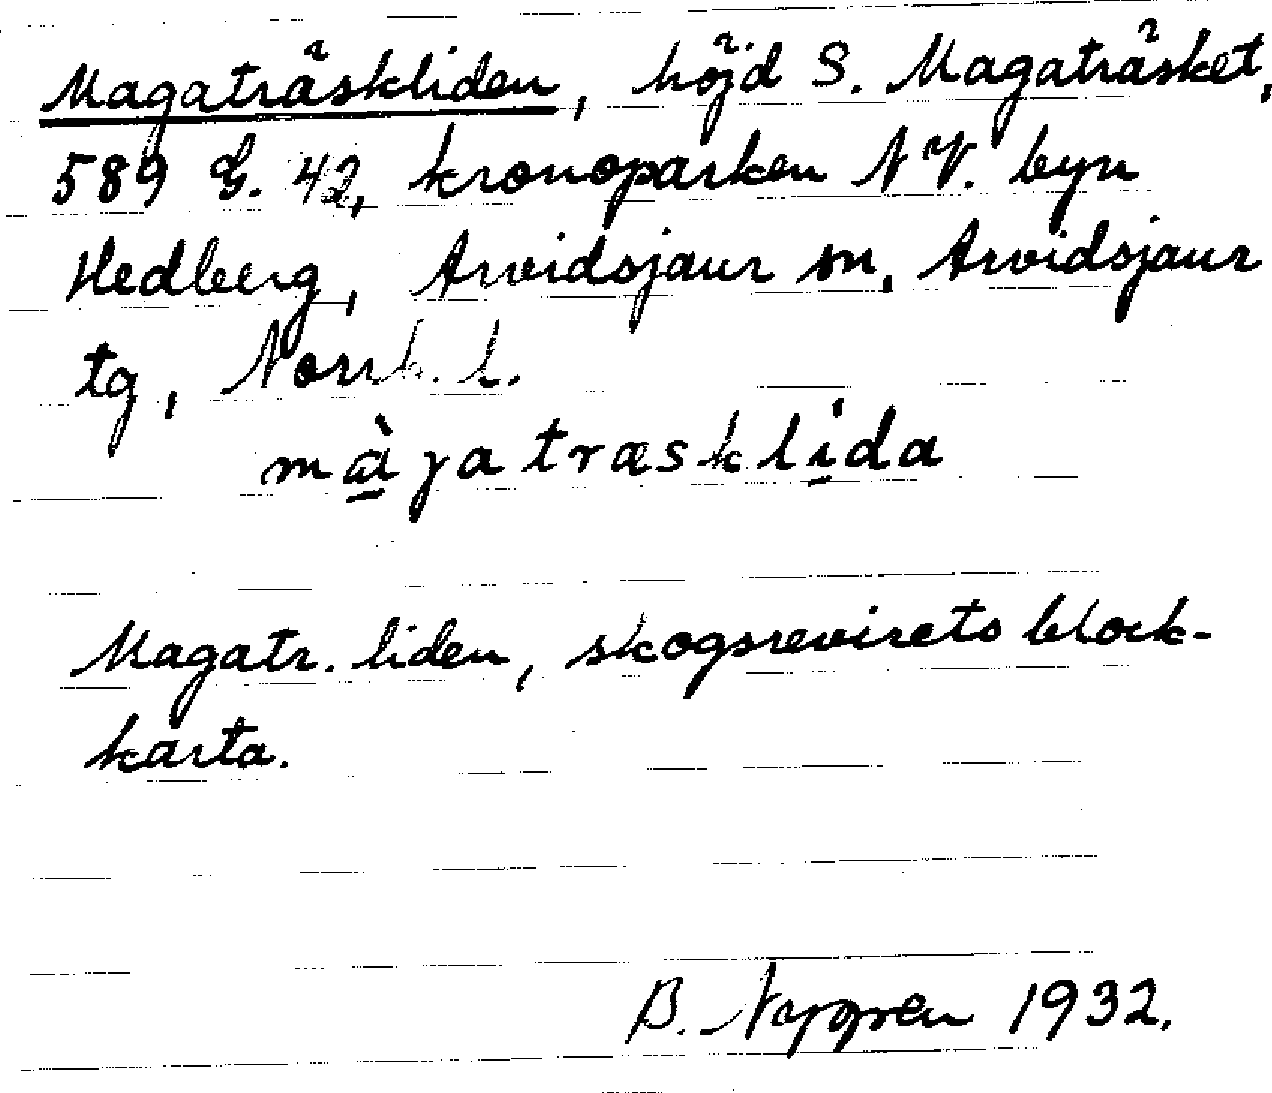 Magaträskliden, höjd S. Magaträsket,
589 E. 42, kronoparken N V. byn
Hedberg, Arvidsjaur sn, Arvidsjaur
tg, Norrb. l.
màgatræsklida
Magatr. liden, skogsrevirets block-
karta.
B. Nygren 1932.